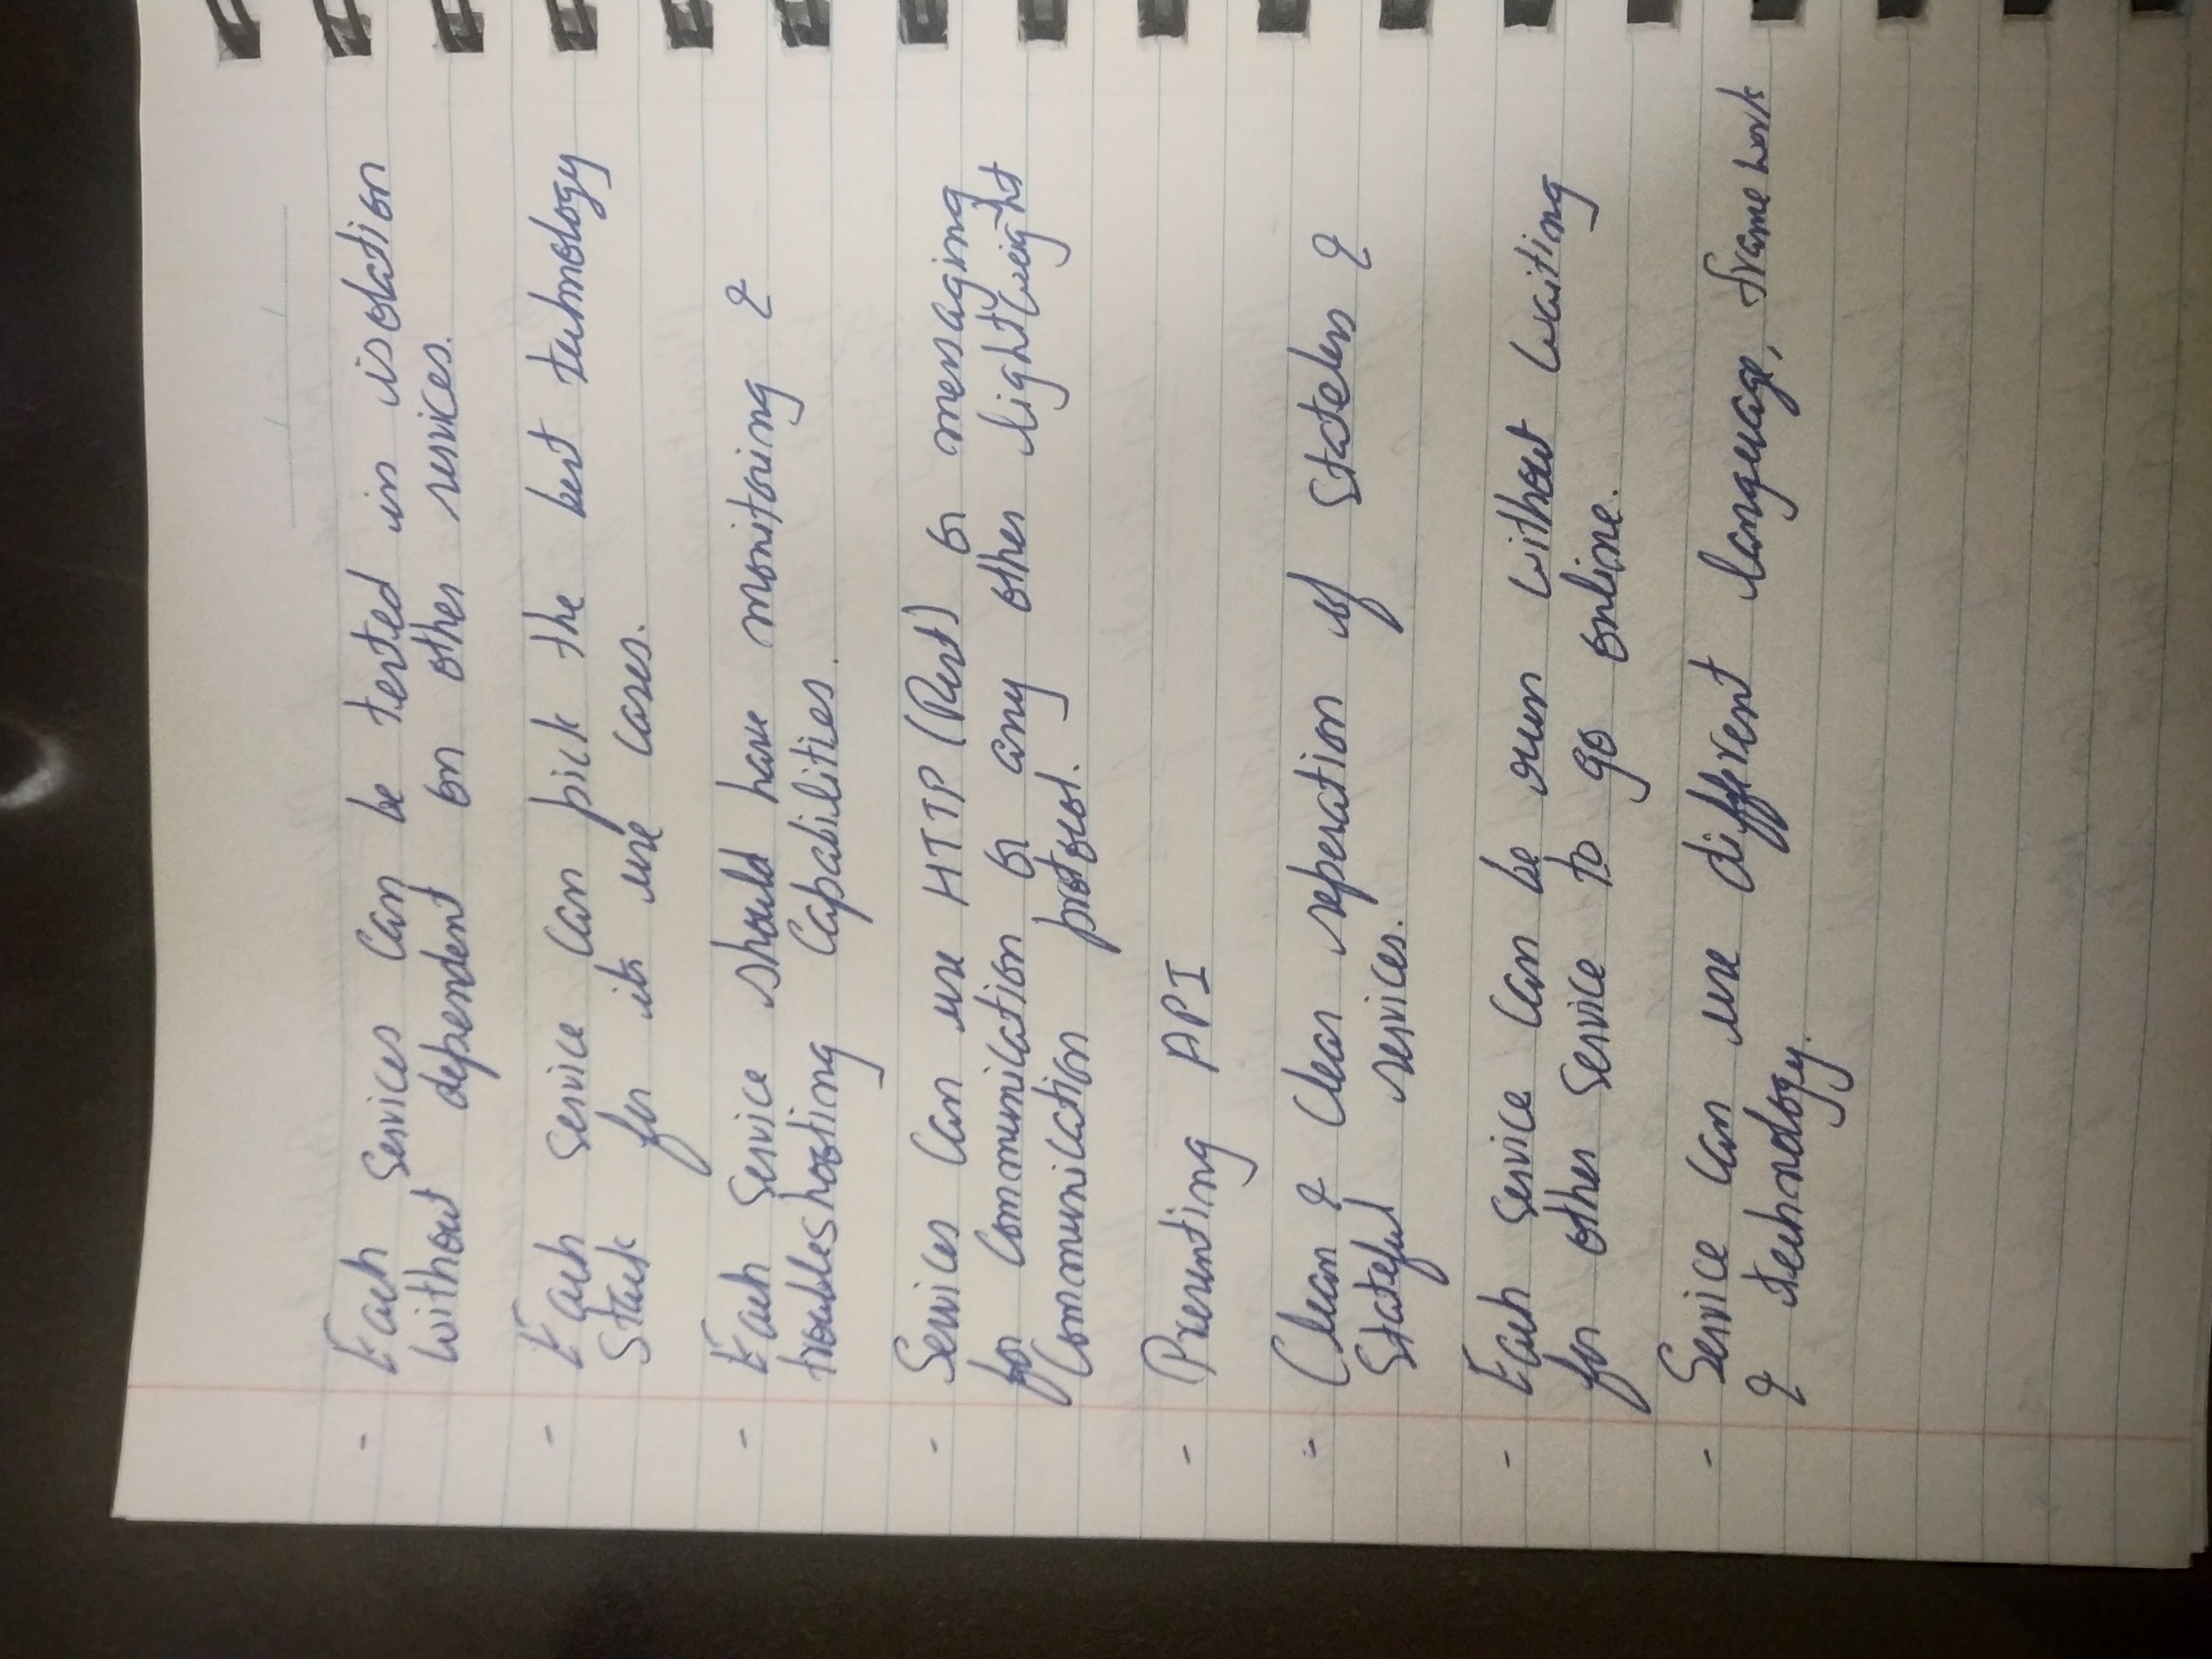 - Each services can be tested in isolation
without dependent on other services.
- Each service can pick the best technology
Stack for its use cases.
- Each service should have monitoring &
troubleshooting Capabilities.
- Services can use HTTP (Rest) or messaging
for communication or any other lightweight
Communication protocol.
- Presenting API
- Clean & Clear seperation of Stateless &
Stateful services.
- Each service can be run without waiting
for other service to go online.
- Service can use different language, frame work
& technology.